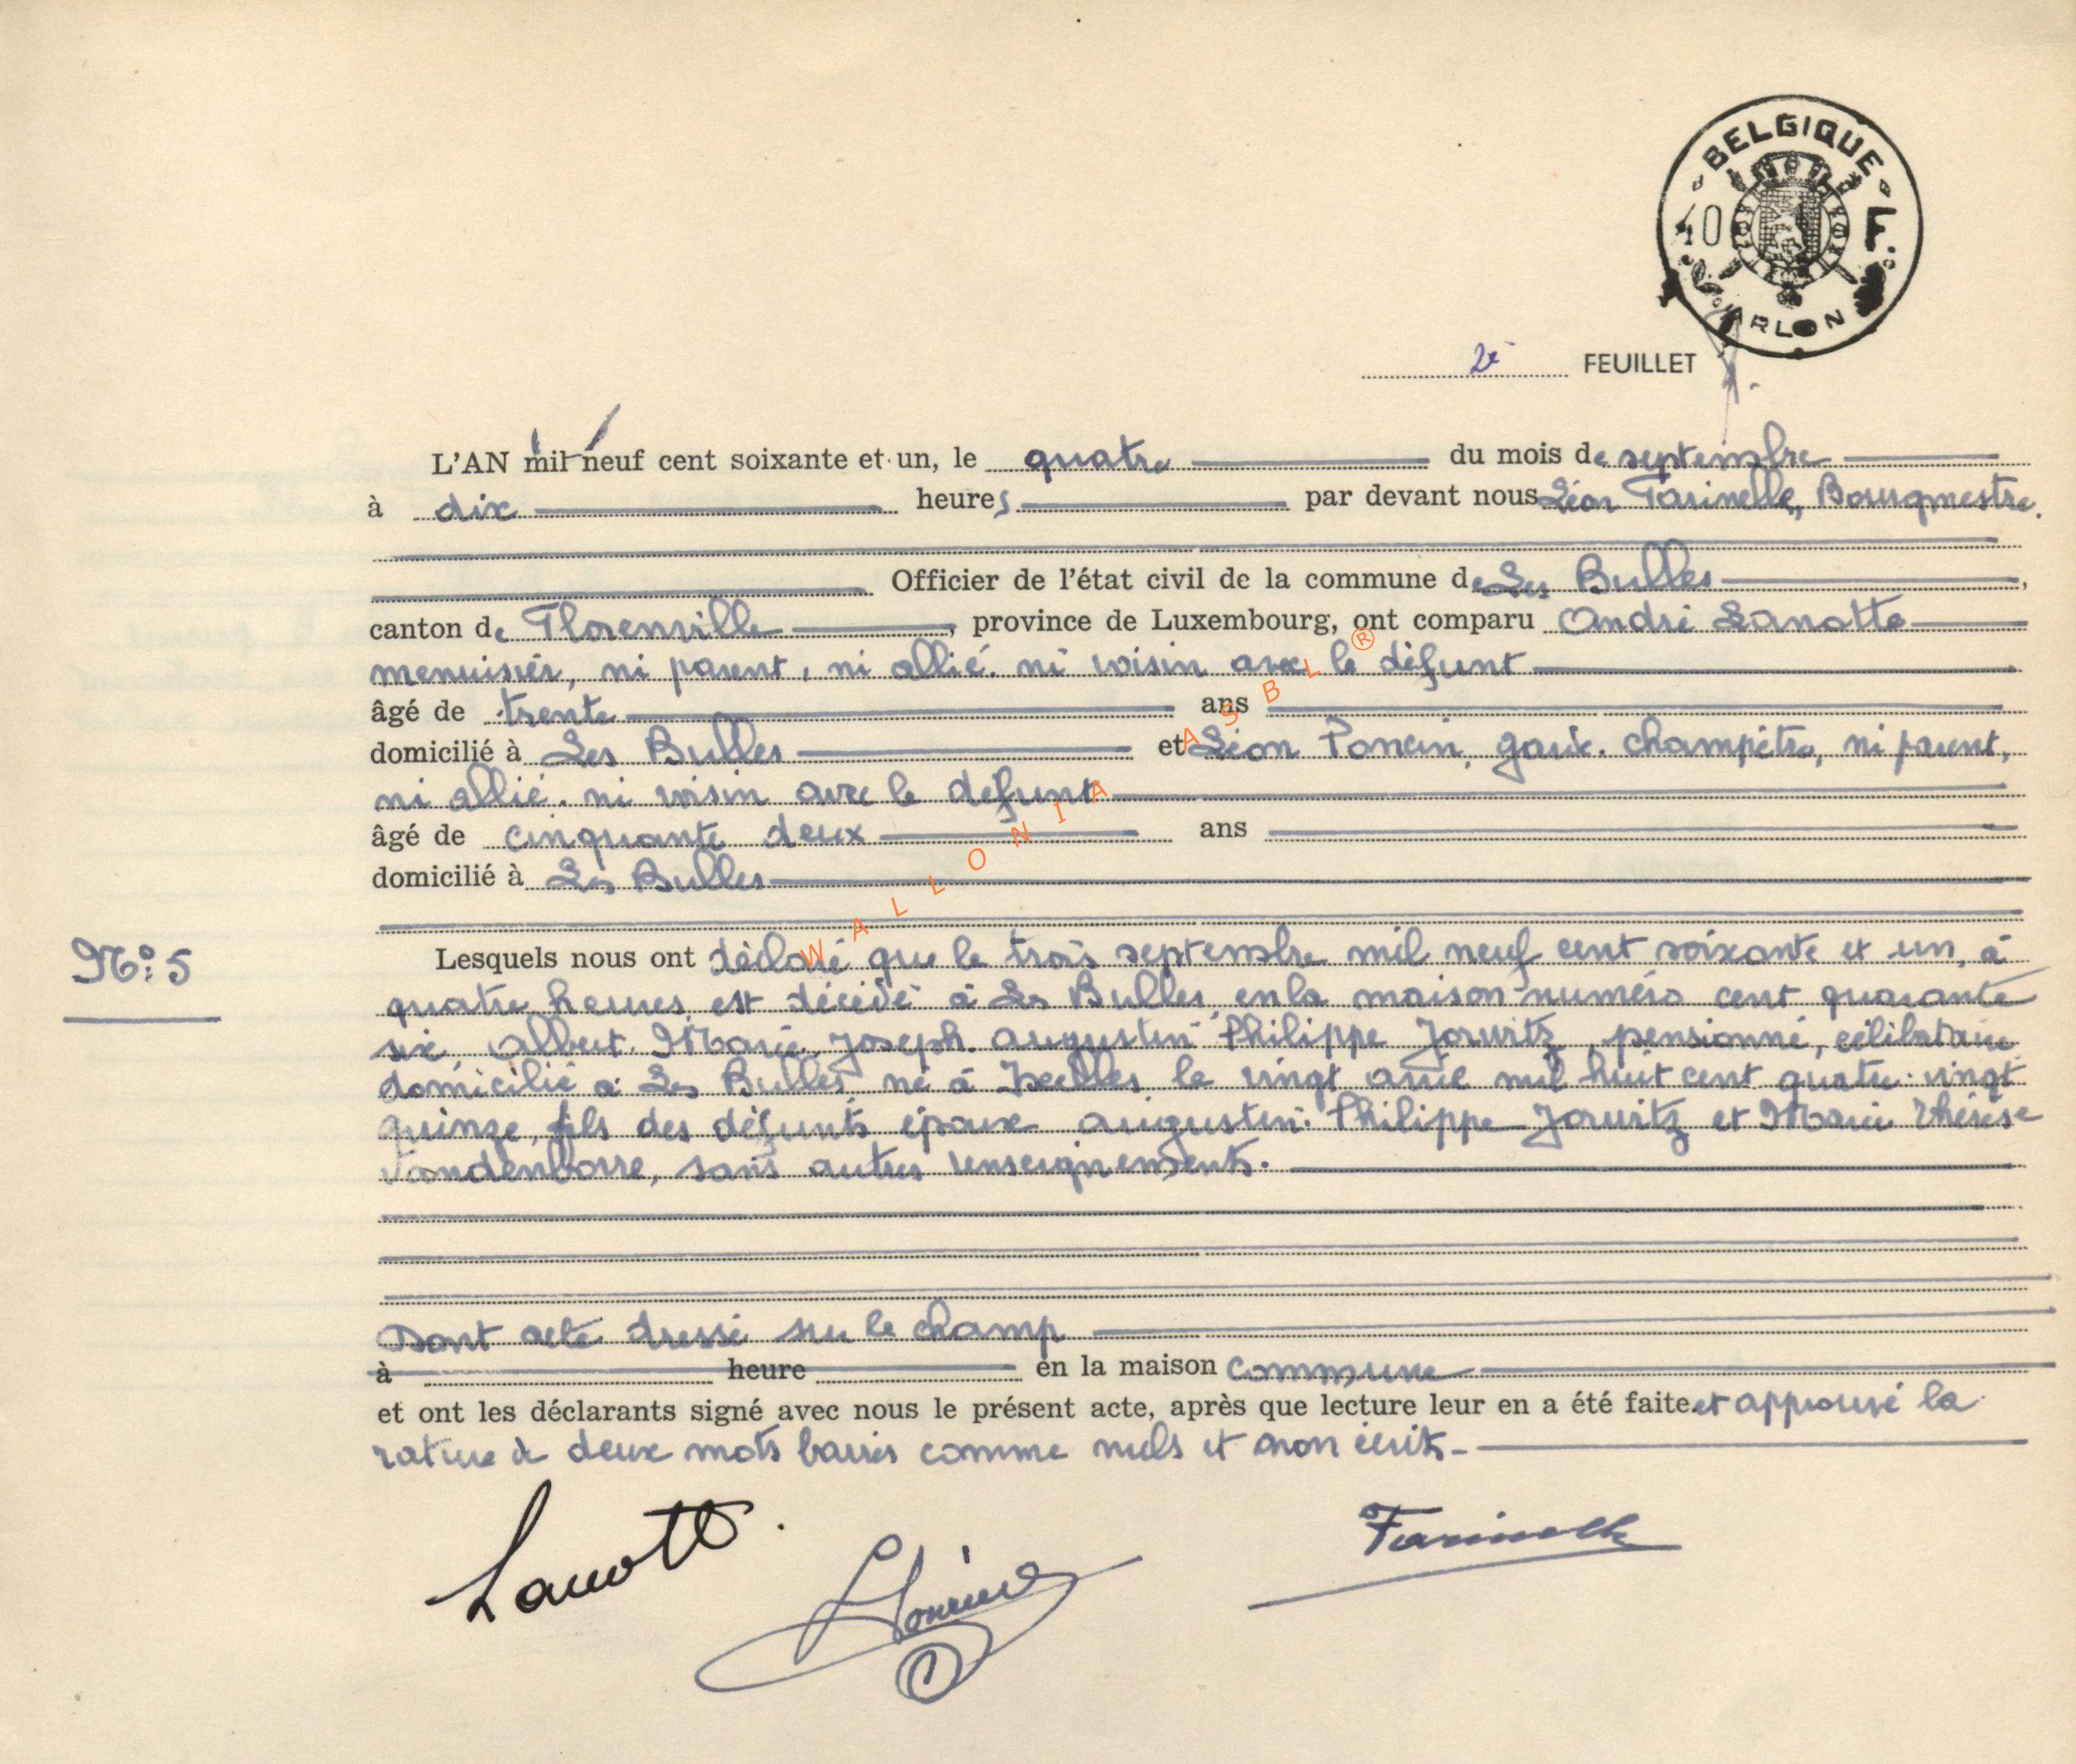 BELGIQUE
40 F.
ARLON
2e FEUILLET
L'AN mil neuf cent soixante et un, le quatre du mois de septembre
à dix heures par devant nous Léon Farinelle, Bourgmestre.
Officier de l'état civil de la commune de Les Bulles,
canton de Florenville, province de Luxembourg, ont comparu André Lanotte
menuisier, ni parent, ni allié, ni voisin avec le défunt
âgé de trente ans
domicilié à Les Bulles et Léon Poncin, garde-champêtre, ni parent,
ni allié, ni voisin avec le défunt
âgé de cinquante deux ans
domicilié à Les Bulles
N° 5
Lesquels nous ont déclaré que le trois septembre mil neuf cent soixante et un, à
quatre heures, est décédé à Les Bulles, en la maison numéro cent quarante
six, Albert, Marie, Joseph, Augustin, Philippe Jorwitz, pensionné, célibataire
domicilié à Les Bulles né à Ixelles le vingt avril mil huit cent quatre-vingt
quinze, fils des défunts époux Augustin-Philippe Jorwitz et Marie Thérèse
Vandenbosre, sans autres renseignements.
Dont acte dressé sur le champ
à heure en la maison commune
et ont les déclarants signé avec nous le présent acte, après que lecture leur en a été faite et approuvé la
rature de deux mots barrés comme nuls et non écrits-
Lanotte
Farinelle
WALLONIA ASBL ®